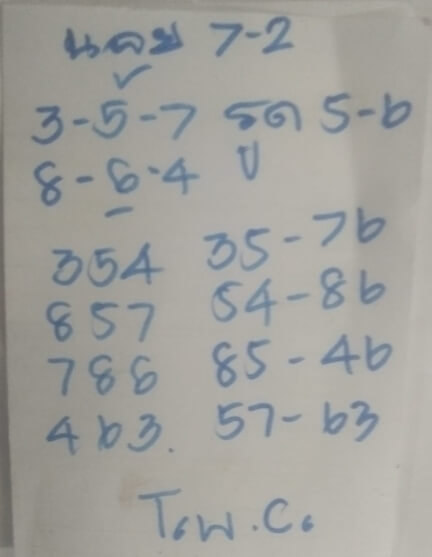 7-2
3-5-7 รูด 5-6
8-6-4 ปี
354 35-76
857 54-86
786 85-46
463. 57-63
T.พ.C.